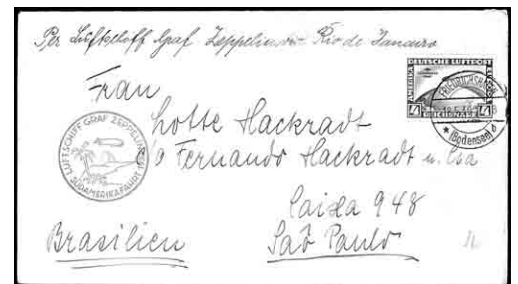 Per Luftschiff Graf Zeppelin via Rio de Janeiro
DEUTSCHE LUFTPOST
FRIEDRICHSHAFEN
(Bodensee)
Frau
Lotte Hackradt
c/o Fernando Hackradt u. Cia
LUFTSCHIFF GRAF ZEPPELIN
SÜDAMERIKAFAHRT
Caixa 948
Brasilien
São Paulo